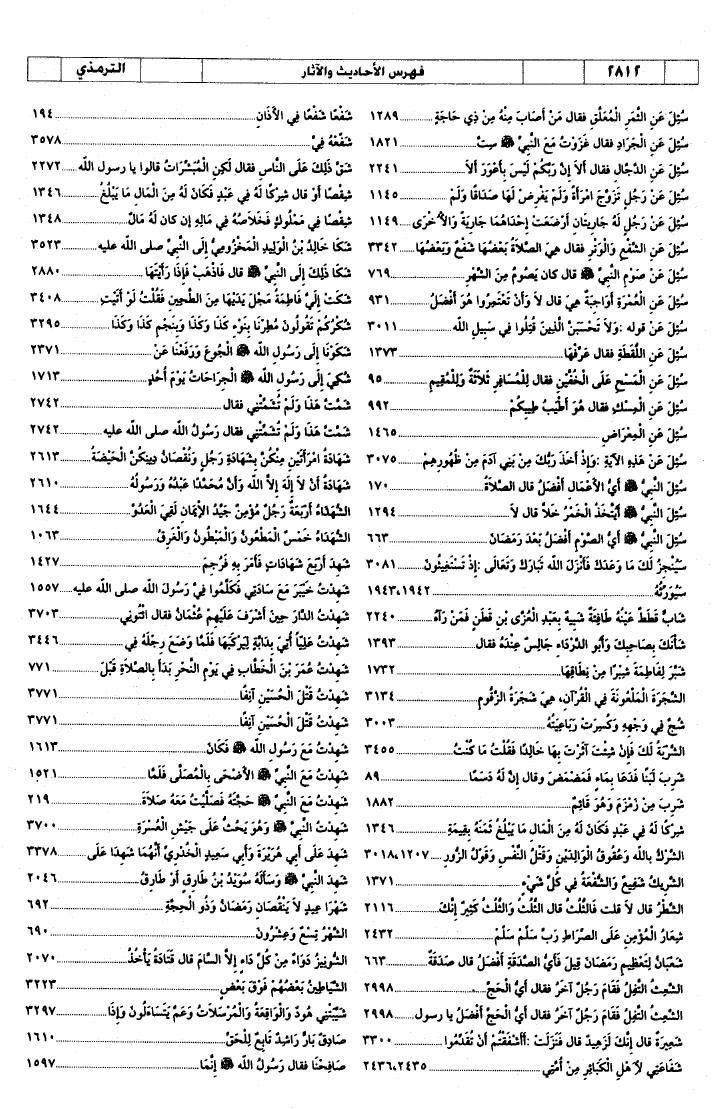 ٢٨١٢ فهرس الأحاديث والآثار الترمذي
سُئِلَ عَنِ الثَّمَرِ الْمُعَلَّقِ فقال مَنْ أصَابَ مِنْهُ مِنْ ذِي حَاجَةٍ ........ ١٢٨٩
سُئِلَ عَنِ الْجَرَادِ فقال غَزَوْتُ مَعَ النَّبيِّ ﷺ سِتَّ ........ ١٨٢١
سُئِلَ عَنِ الدَّجَّالِ فقال ألاَ إنَّ رَبَّكُمْ لَيْسَ بِأعْوَرَ ألاَ ........ ٢٢٤١
سُئِلَ عَنْ رَجُلٍ تَزَوَّجَ امْرَأةً وَلَمْ يَفْرِضْ لَهَا صَدَاقًا وَلَمْ ........ ١١٤٥
سُئِلَ عَنْ رَجُلٍ لَهُ جَارِيتَانِ أرْضَعَتْ إحْدَاهُمَا جَارِيَةً وَالأُخْرَى ........ ١١٤٩
سُئِلَ عَنِ الشَّفْعِ وَالْوَتْرِ فقال هيَ الصَّلاَةُ بَعْضُهَا شَفْعٌ وَبَعْضُهَا ........ ٣٣٤٢
سُئِلَ عَنْ صَوْمِ النَّبيِّ ﷺ قال كان يَصُومُ مِنَ الشَّهْرِ ........ ٧٦٩
سُئِلَ عَنِ الْعُمْرَةِ أوَاجِبَةٌ هِيَ قال لاَ وَأنْ تَعْتَمِرُوا هُوَ أفْضَلُ ........ ٩٣١
سُئِلَ عَنْ قوله :وَلاَ تَحْسَبَنَّ الَّذِينَ قُتِلُوا في سَبِيلِ الله ........ ٣٠١١
سُئِلَ عَنِ اللُّقَطَةِ فقال عَرِّفْهَا ........ ١٣٧٣
سُئِلَ عَنِ الْمَسْحِ عَلَى الْخُفَّيْنِ فقال لِلْمُسَافِرِ ثَلاَثَةٌ وَلِلْمُقِيمِ ........ ٩٥
سُئِلَ عَنِ الْمِسْكِ فقال هُوَ أطْيَبُ طِيبِكُمْ ........ ٩٩٢
سُئِلَ عَنِ الْمِعْرَاضِ ........ ١٤٦٥
سُئِلَ عَنْ هَذِهِ الآيَةِ :وَإذْ أخَذَ رَبُّكَ مِنْ بَنِي آدَمَ مِنْ ظُهُورِهِمْ ........ ٣٠٧٥
سُئِلَ النَّبيُّ ﷺ أيُّ الأعْمَالِ أفْضَلُ قال الصَّلاَةُ ........ ١٧٠
سُئِلَ النَّبيُّ ﷺ أيُتَّخَذُ الْخَمْرُ خَلاًّ قال لاَ ........ ١٢٩٤
سُئِلَ النَّبيُّ ﷺ أيُّ الصَّوْمِ أفْضَلُ بَعْدَ رَمَضَانَ ........ ٦٦٣
سَيُنْجِزُ لَكَ مَا وَعَدَكَ فَأنْزَلَ الله تَبَارَكَ وَتَعَالَى :إذْ تَسْتَغِيثُونَ ........ ٣٠٨١
سَيُوَرِّثُهُ ........ ١٩٤٢، ١٩٤٣
شَابٌّ قَطَطٌ عَيْنُهُ طَافِئَةٌ شَبِيهٌ بِعَبْدِ الْعُزَّى بْنِ قَطَنٍ فَمَنْ رَآهُ ........ ٢٢٤٠
شَأنُكَ بِصَاحِبِكَ وَأبو الدَّرْدَاءِ جَالِسٌ عِنْدَهُ فقال ........ ١٣٩٣
شَبَّرَ لِفَاطِمَةَ شِبْرًا مِنْ نِطَاقِهَا ........ ١٧٣٢
الشَّجَرَةَ الْمَلْعُونَةَ فِي الْقُرْآنِ، هيَ شَجَرَةُ الزَّقُّومِ ........ ٣١٣٤
شُجَّ فِي وَجْهِهِ وَكُسِرَتْ رَبَاعِيَتُهُ ........ ٣٠٠٣
الشَّرْبَةُ لَكَ فَإنْ شِئْتَ آثَرْتَ بِهَا خَالِدًا فَقُلْتُ مَا كُنْتُ ........ ٣٤٥٥
شَرِبَ لَبَنًا فَدَعَا بِمَاءٍ فَمَضْمَضَ وقال إنَّ لَهُ دَسَمًا ........ ٨٩
شَرِبَ مِنْ زَمْزَمَ وَهُوَ قَائِمٌ ........ ١٨٨٢
شِرْكًا لَهُ فِي عَبْدٍ فَكَانَ لَهُ مِنَ الْمَالِ مَا يَبْلُغُ ثَمَنَهُ بِقِيمَةِ ........ ١٣٤٦
الشِّرْكُ بالله وَعُقُوقُ الْوَالِدَيْنِ وَقَتْلُ النَّفْسِ وَقَوْلُ الزُّورِ ........ ١٢٠٧، ٣٠١٨
الشَّرِيكُ شَفِيعٌ وَالشُّفْعَةُ فِي كُلِّ شَيْءٍ ........ ١٣٧١
الشَّطْرُ قال لاَ قلت فَالثُّلُثُ قال الثُّلُثُ وَالثُّلُثُ كَثِيرٌ إنَّكَ ........ ٢١١٦
شِعَارُ الْمُؤْمِنِ عَلَى الصِّرَاطِ رَبِّ سَلِّمْ سَلِّمْ ........ ٢٤٣٢
شَعْبَانُ لِتَعْظِيمِ رَمَضَانَ قِيلَ فَأيُّ الصَّدَقَةِ أفْضَلُ قال صَدَقَةٌ ........ ٦٦٣
الشَّعِثُ التَّفِلُ فَقَامَ رَجُلٌ آخَرُ فقال أيُّ الْحَجِّ ........ ٢٩٩٨
الشَّعِثُ التَّفِلُ فَقَامَ رَجُلٌ آخَرُ فقال أيُّ الْحَجِّ أفْضَلُ يا رسول ........ ٢٩٩٨
شَعِيرَةٌ قال إنَّكَ لَزَهِيدٌ قال فَنَزَلَتْ :أأشْفَقْتُمْ أنْ تُقَدِّمُوا ........ ٣٣٠٠
شَفَاعَتِي لأَهْلِ الْكَبَائِرِ مِنْ أُمَّتِي ........ ٢٤٣٥، ٢٤٣٦
شَفْعًا شَفْعًا فِي الأَذَانِ ........ ١٩٤
شَفِّعْهُ فِيَّ ........ ٣٥٧٨
شَقَّ ذَلِكَ عَلَى النَّاسِ فقال لَكِنِ الْمُبَشِّرَاتُ قالوا يا رسول الله ........ ٢٢٧٢
شِقْصًا أوْ قال شِرْكًا لَهُ فِي عَبْدٍ فَكَانَ لَهُ مِنَ الْمَالِ مَا يَبْلُغُ ........ ١٣٤٦
شِقْصًا فِي مَمْلُوكٍ فَخَلاَصُهُ فِي مَالِهِ إن كان لَهُ مَالٌ ........ ١٣٤٨
شَكَا خَالِدُ بْنُ الْوَلِيدِ الْمَخْزُومِيُّ إلَى النَّبيِّ صلى الله عليه ........ ٣٥٢٣
شَكَا ذَلِكَ إلَى النَّبيِّ ﷺ قال فَاذْهَبْ فَإذَا رَأيْتَهَا ........ ٢٨٨٠
شَكَتْ إلَيَّ فَاطِمَةُ مَجْلَ يَدَيْهَا مِنَ الطَّحِينِ فَقُلْتُ لَوْ أتَيْتِ ........ ٣٤٠٨
شُكْرُكُمْ تَقُولُونَ مُطِرْنَا بِنَوْءِ كَذَا وَكَذَا وَبِنَجْمِ كَذَا وَكَذَا ........ ٣٢٩٥
شَكَوْنَا إلَى رَسُولِ الله ﷺ الْجُوعَ وَرَفَعْنَا عَنْ ........ ٢٣٧١
شُكِيَ إلَى رَسُولِ الله ﷺ الْجِرَاحَاتُ يَوْمَ أُحُدٍ ........ ١٧١٣
شَمَّتَّ هَذَا وَلَمْ تُشَمِّتْنِي فقال ........ ٢٧٤٢
شَمَّتَّ هَذَا وَلَمْ تُشَمِّتْنِي فقال رَسُولُ الله صلى الله عليه ........ ٢٧٤٢
شَهَادَةُ امْرَأتَيْنِ مِنْكُنَّ بِشَهَادَةِ رَجُلٍ وَنُقْصَانُ دِينِكُنَّ الْحَيْضَةُ ........ ٢٦١٣
شَهَادَةُ أنْ لاَ إلَهَ إلاَّ الله وَأنَّ مُحَمَّدًا عَبْدُهُ وَرَسُولُهُ ........ ٢٦١٠
الشُّهَدَاءُ أرْبَعَةٌ رَجُلٌ مُؤْمِنٌ جَيِّدُ الإيمَانِ لَقِيَ الْعَدُوَّ ........ ١٦٤٤
الشُّهَدَاءُ خَمْسٌ الْمَطْعُونُ وَالْمَبْطُونُ وَالْغَرِقُ ........ ١٠٦٣
شَهِدَ أرْبَعَ شَهَادَاتٍ فَأمَرَ بِهِ فَرُجِمَ ........ ١٤٢٧
شَهِدْتُ خَيْبَرَ مَعَ سَادَتِي فَكَلَّمُوا فِيَّ رَسُولَ الله صلى الله عليه ........ ١٥٥٧
شَهِدْتُ الدَّارَ حِينَ أشْرَفَ عَلَيْهِمْ عُثْمَانُ فقال ائْتُونِي ........ ٣٧٠٣
شَهِدْتُ عَلِيًّا أُتِيَ بِدَابَّةٍ لِيَرْكَبَهَا فَلَمَّا وَضَعَ رِجْلَهُ فِي ........ ٣٤٤٦
شَهِدْتُ عُمَرَ بْنَ الْخَطَّابِ فِي يَوْمِ النَّحْرِ بَدَأ بِالصَّلاَةِ قَبْلَ ........ ٧٧١
شَهِدْتُ قَتْلَ الْحُسَيْنِ آنِفًا ........ ٣٧٧١
شَهِدْتُ قَتْلَ الْحُسَيْنِ آنِفًا ........ ٣٧٧١
شَهِدْتُ مَعَ رَسُولِ الله ﷺ فَكَانَ ........ ١٦١٣
شَهِدْتُ مَعَ النَّبيِّ ﷺ الأضْحَى بِالْمُصَلَّى فَلَمَّا ........ ١٥٢١
شَهِدْتُ مَعَ النَّبيِّ ﷺ حَجَّتَهُ فَصَلَّيْتُ مَعَهُ صَلاَةَ ........ ٢١٩
شَهِدْتُ النَّبيَّ ﷺ وَهُوَ يَحُثُّ عَلَى جَيْشِ الْعُسْرَةِ ........ ٣٧٠٠
شَهِدَ عَلَى أبي هُرَيْرَةَ وَأبي سَعِيدٍ الْخُدْرِيِّ أنَّهُمَا شَهِدَا عَلَى ........ ٣٣٧٨
شَهِدَ النَّبيَّ ﷺ وَسَألَهُ سُوَيْدُ بْنُ طَارِقٍ أوْ طَارِقُ ........ ٢٠٤٦
شَهْرَا عِيدٍ لاَ يَنْقُصَانِ رَمَضَانُ وَذُو الْحِجَّةِ ........ ٦٩٢
الشَّهْرُ تِسْعٌ وَعِشْرُونَ ........ ٦٩٠
الشُّونِيزُ دَوَاءٌ مِنْ كُلِّ دَاءٍ إلاَّ السَّامَ قال قَتَادَةُ يَأْخُذُ ........ ٢٠٧٠
الشَّيَاطِينُ بَعْضُهُمْ فَوْقَ بَعْضٍ ........ ٣٢٢٣
شَيَّبَتْنِي هُودٌ وَالْوَاقِعَةُ وَالْمُرْسَلاَتُ وَعَمَّ يَتَسَاءَلُونَ وَإذَا ........ ٣٢٩٧
صَادِقٌ بَارٌّ رَاشِدٌ تَابِعٌ لِلْحَقِّ ........ ١٦١٠
صَافِحْنَا فقال رَسُولُ الله ﷺ إنَّمَا ........ ١٥٩٧